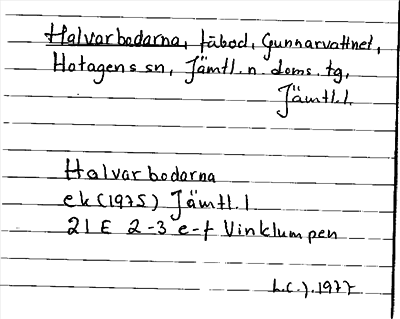 Halvarbodarna, fäbod, Gunnarvattnet,
Hotagens sn, Jämtl. n. doms. tg,
Jämtl. l.
Halvarbodarna
ek (1975) Jämtl. l
21 E 2-3 e-f Vinklumpen
1977